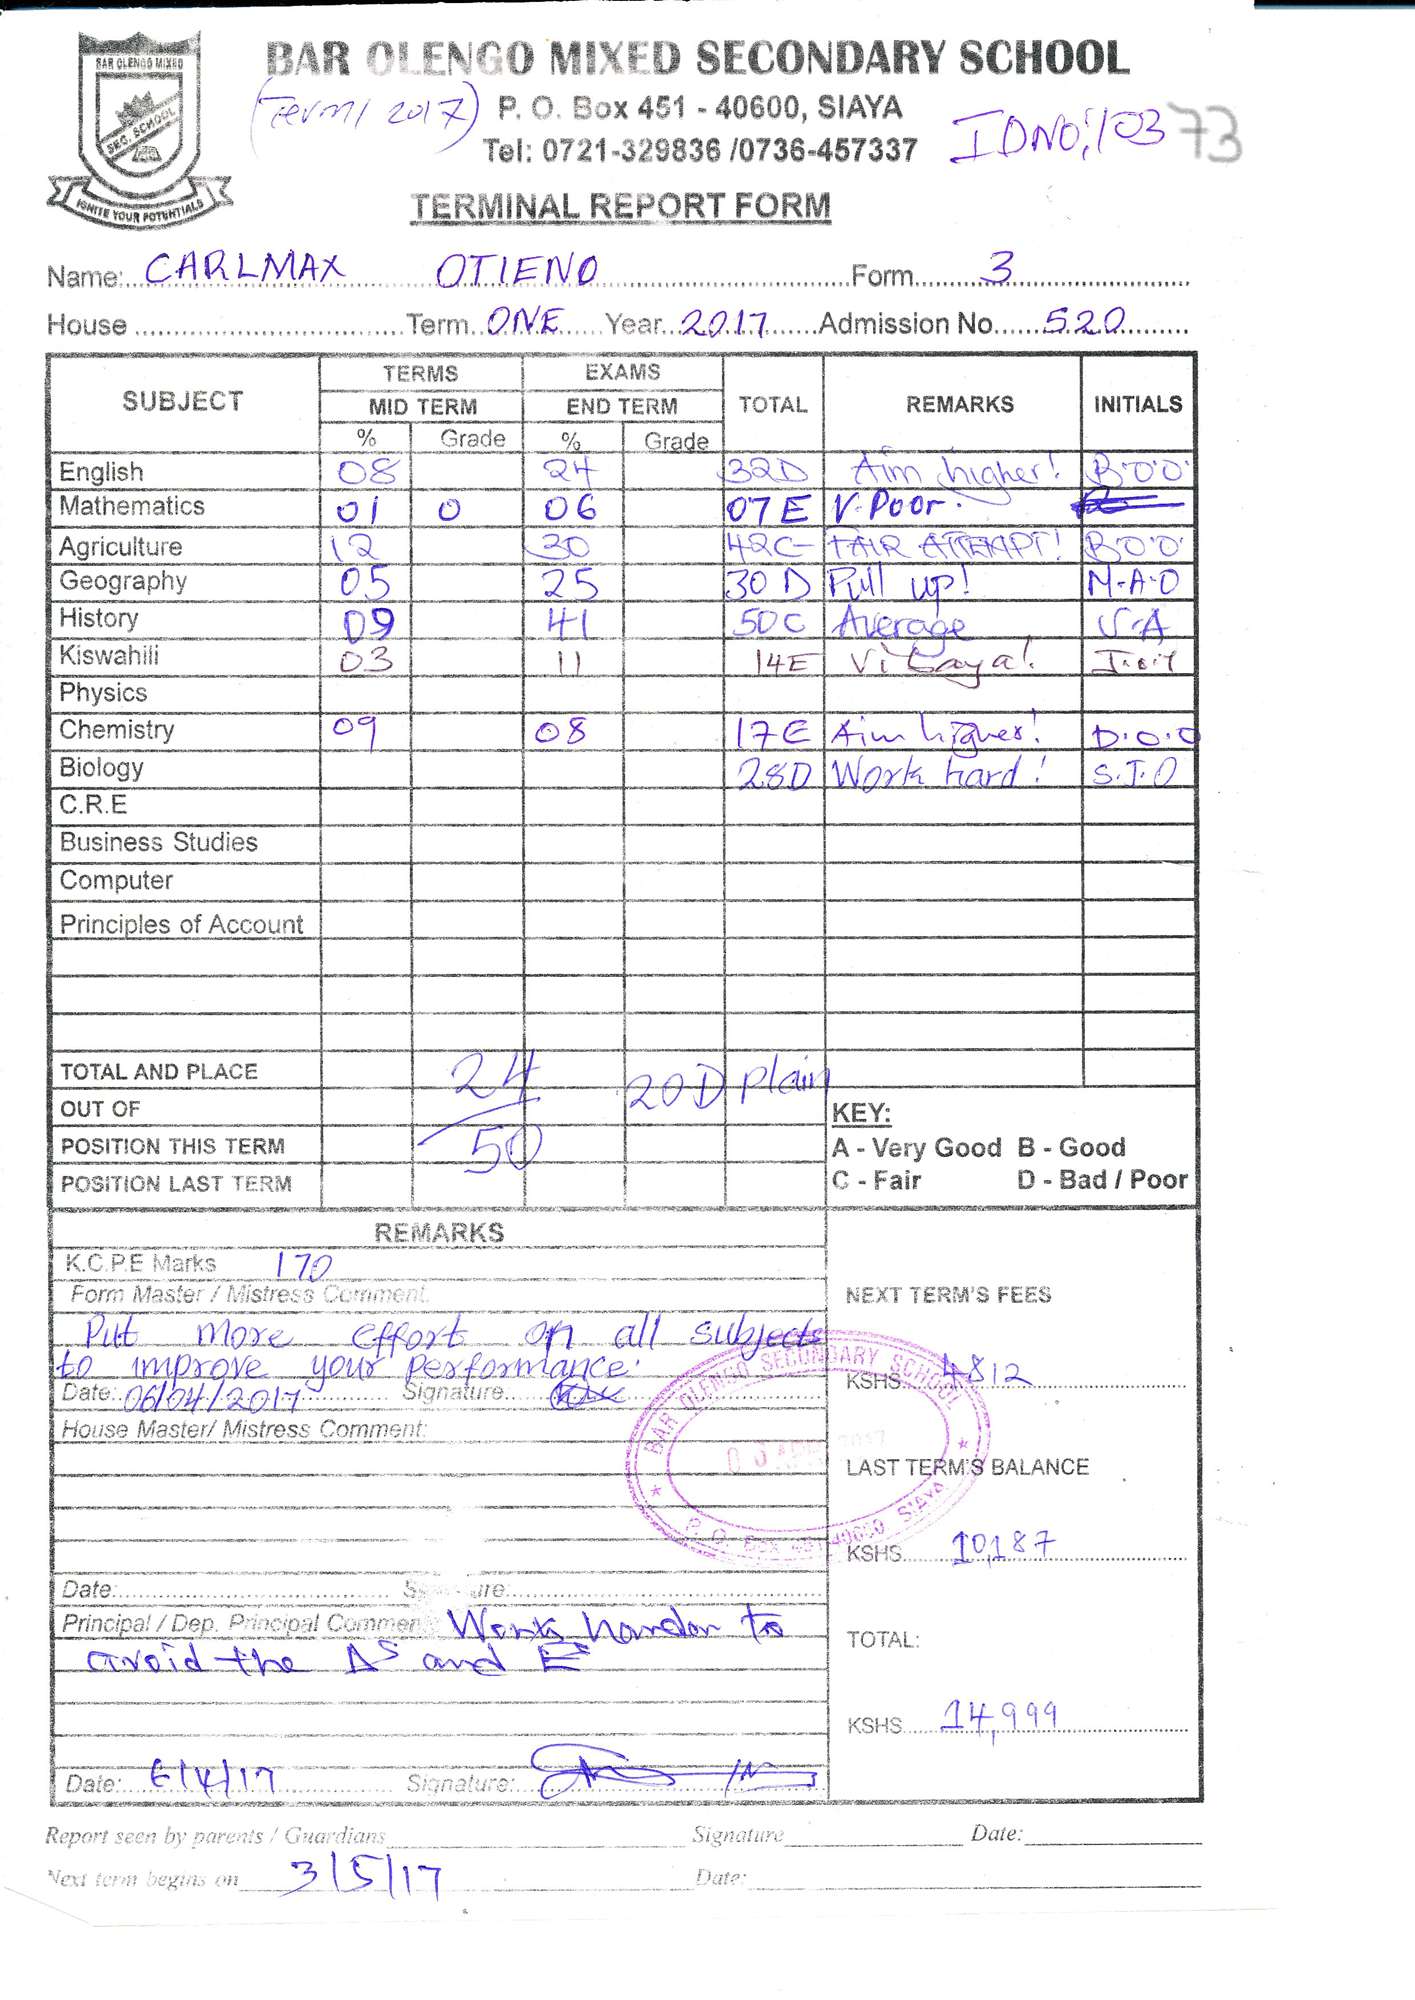 BAR OLENGO MIXED
SEC. SCHOOL
IGNITE YOUR POTENTIALS
BAR OLENGO MIXED SECONDARY SCHOOL
(Term 1 2017) P. O. Box 451 - 40600, SIAYA
Tel: 0721-329836 /0736-457337 IDNO:10373
TERMINAL REPORT FORM
Name: CARLMAX OTIENO Form 3
House Term ONE Year 2017 Admission No. 520
SUBJECT TERMS EXAMS TOTAL REMARKS INITIALS
MID TERM END TERM
% Grade % Grade
English 08 24 32D Aim higher! B.O.O
Mathematics 01 0 06 07E V. Poor.
Agriculture 12 30 42C- FAIR ATTEMPT! B.O.O
Geography 05 25 30 D Pull up! M.A.O
History 09 41 50C Average V.A
Kiswahili 03 11 14E Vibaya!
Physics
Chemistry 09 08 17E Aim higher! D.O.O
Biology 28D Work hard! S.J.O
C.R.E
Business Studies
Computer
Principles of Account
TOTAL AND PLACE 24 20D plain
OUT OF
POSITION THIS TERM 50
POSITION LAST TERM
KEY:
A - Very Good B - Good
C - Fair D - Bad / Poor
REMARKS
K.C.P.E Marks 170
Form Master / Mistress Comment:
Put more effort on all subjects
to improve your performance.
Date: 06/04/2017 Signature
House Master/ Mistress Comment:
Date: Signature:
Principal / Dep. Principal Comment Work harder to
avoid the Ds and Es
Date: 6/4/17 Signature:
NEXT TERM'S FEES
KSHS 4812
LAST TERM'S BALANCE
KSHS 10,187
TOTAL:
KSHS 14,999
BAR OLENGO SECONDARY SCHOOL
APR 2017
P. O. Box 451-40600 SIAYA
Report seen by parents / Guardians Signature Date:
Next term begins on 3/5/17 Date: